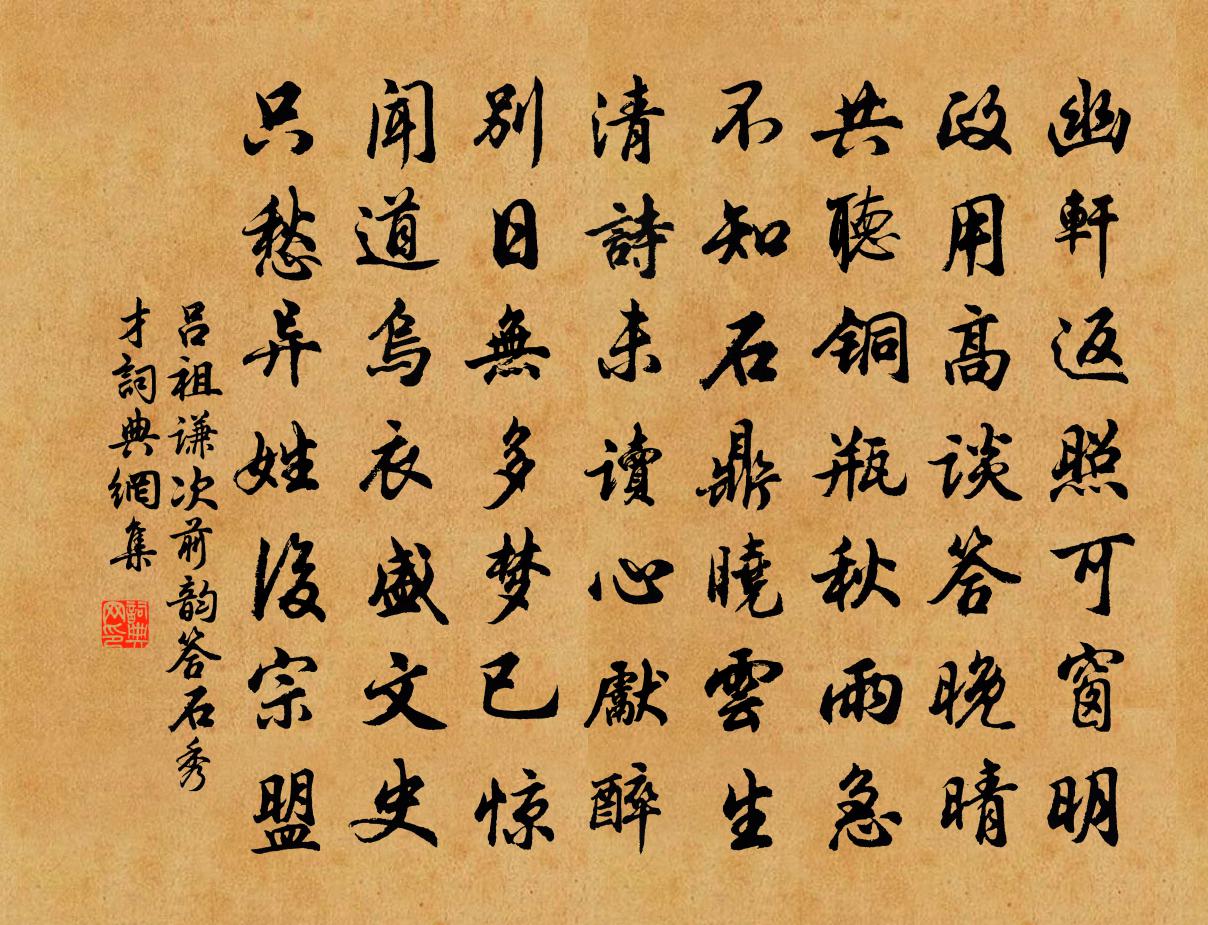 幽軒返照可窗明
政用高談答晚晴
共聽銅瓶秋雨急
不知石鼎曉雲生
清詩未讀心獻醉
別日無多梦已惊
聞道烏衣盛文史
只愁异姓後宗盟
呂祖謙次前韵答石秀
才詞典網集
詞典网印